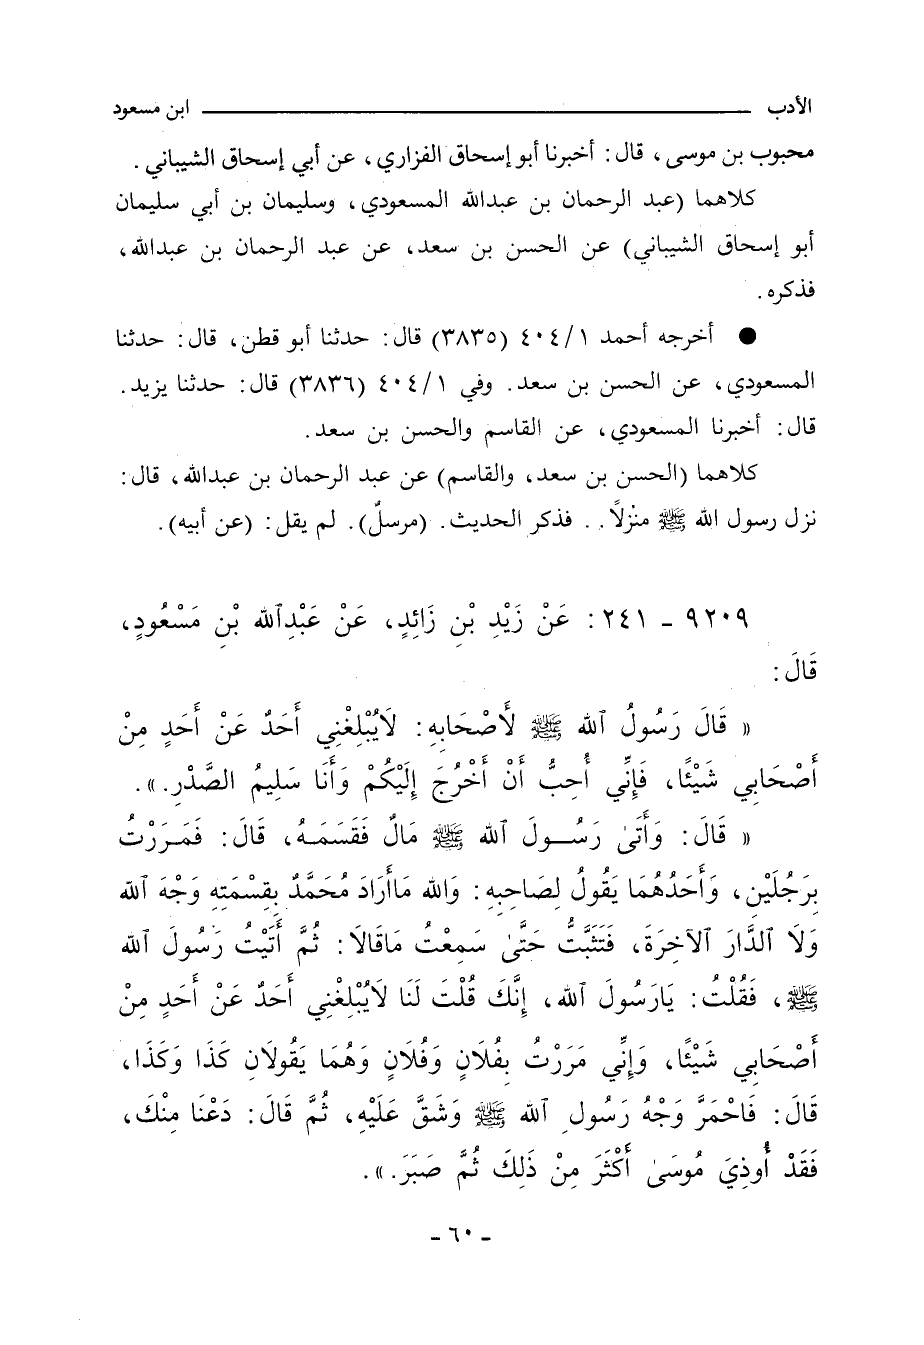 الأدب ــــــــــــــــــــ ابن مسعود
محبوب بن موسى، قال: أخبرنا أبو إسحاق الفزاري، عن أبي إسحاق الشيباني.
كلاهما (عبد الرحمان بن عبدالله المسعودي، وسليمان بن أبي سليمان
أبو إسحاق الشيباني) عن الحسن بن سعد، عن عبد الرحمان بن عبدالله،
فذكره.
● أخرجه أحمد ٤٠٤/١ (٣٨٣٥) قال: حدثنا أبو قطن، قال: حدثنا
المسعودي، عن الحسن بن سعد. وفي ٤٠٤/١ (٣٨٣٦) قال: حدثنا يزيد.
قال: أخبرنا المسعودي، عن القاسم والحسن بن سعد.
كلاهما (الحسن بن سعد، والقاسم) عن عبد الرحمان بن عبدالله، قال:
نزل رسول الله ﷺ منْزلاً.. فذكر الحديث. (مرسلٌ). لم يقل: (عن أبيه).
٩٢٠٩ ـ ٢٤١: عَنْ زَيْدِ بْنِ زَائِدٍ، عَنْ عَبْدِٱللهِ بْنِ مَسْعُودٍ،
قَالَ:
« قَالَ رَسُولُ ٱللهِ ﷺ لأَصْحَابِهِ: لَايُبْلِغْنِي أَحَدٌ عَنْ أَحَدٍ مِنْ
أَصْحَابِي شَيْئًا، فَإِنِّي أُحِبُّ أَنْ أَخْرُجَ إِلَيْكُمْ وَأَنَا سَلِيمُ الصَّدْرِ.».
« قَالَ: وَأَتَىٰ رَسُولَ ٱللهِ ﷺ مَالٌ فَقَسَمَهُ، قَالَ: فَمَرَرْتُ
بِرَجُلَيْنِ، وَأَحَدُهُمَا يَقُولُ لِصَاحِبِهِ: وَاللهِ مَاأَرَادَ مُحَمَّدٌ بِقِسْمَتِهِ وَجْهَ ٱللهِ
وَلَا ٱلدَّارَ ٱلآخِرَةَ، فَتَثَبَّتُّ حَتَّىٰ سَمِعْتُ مَاقَالَا: ثُمَّ أَتَيْتُ رَسُولَ ٱللهِ
ﷺ، فَقُلْتُ: يَارَسُولَ ٱللهِ، إِنَّكَ قُلْتَ لَنَا لَايُبْلِغْنِي أَحَدٌ عَنْ أَحَدٍ مِنْ
أَصْحَابِي شَيْئًا، وَإِنِّي مَرَرْتُ بِفُلَانٍ وَفُلَانٍ وَهُمَا يَقُولَانِ كَذَا وَكَذَا،
قَالَ: فَاحْمَرَّ وَجْهُ رَسُولِ ٱللهِ ﷺ وَشَقَّ عَلَيْهِ، ثُمَّ قَالَ: دَعْنَا مِنْكَ،
فَقَدْ أُوذِيَ مُوسَىٰ أَكْثَرَ مِنْ ذَلِكَ ثُمَّ صَبَرَ.».
ـ ٦٠ ـ